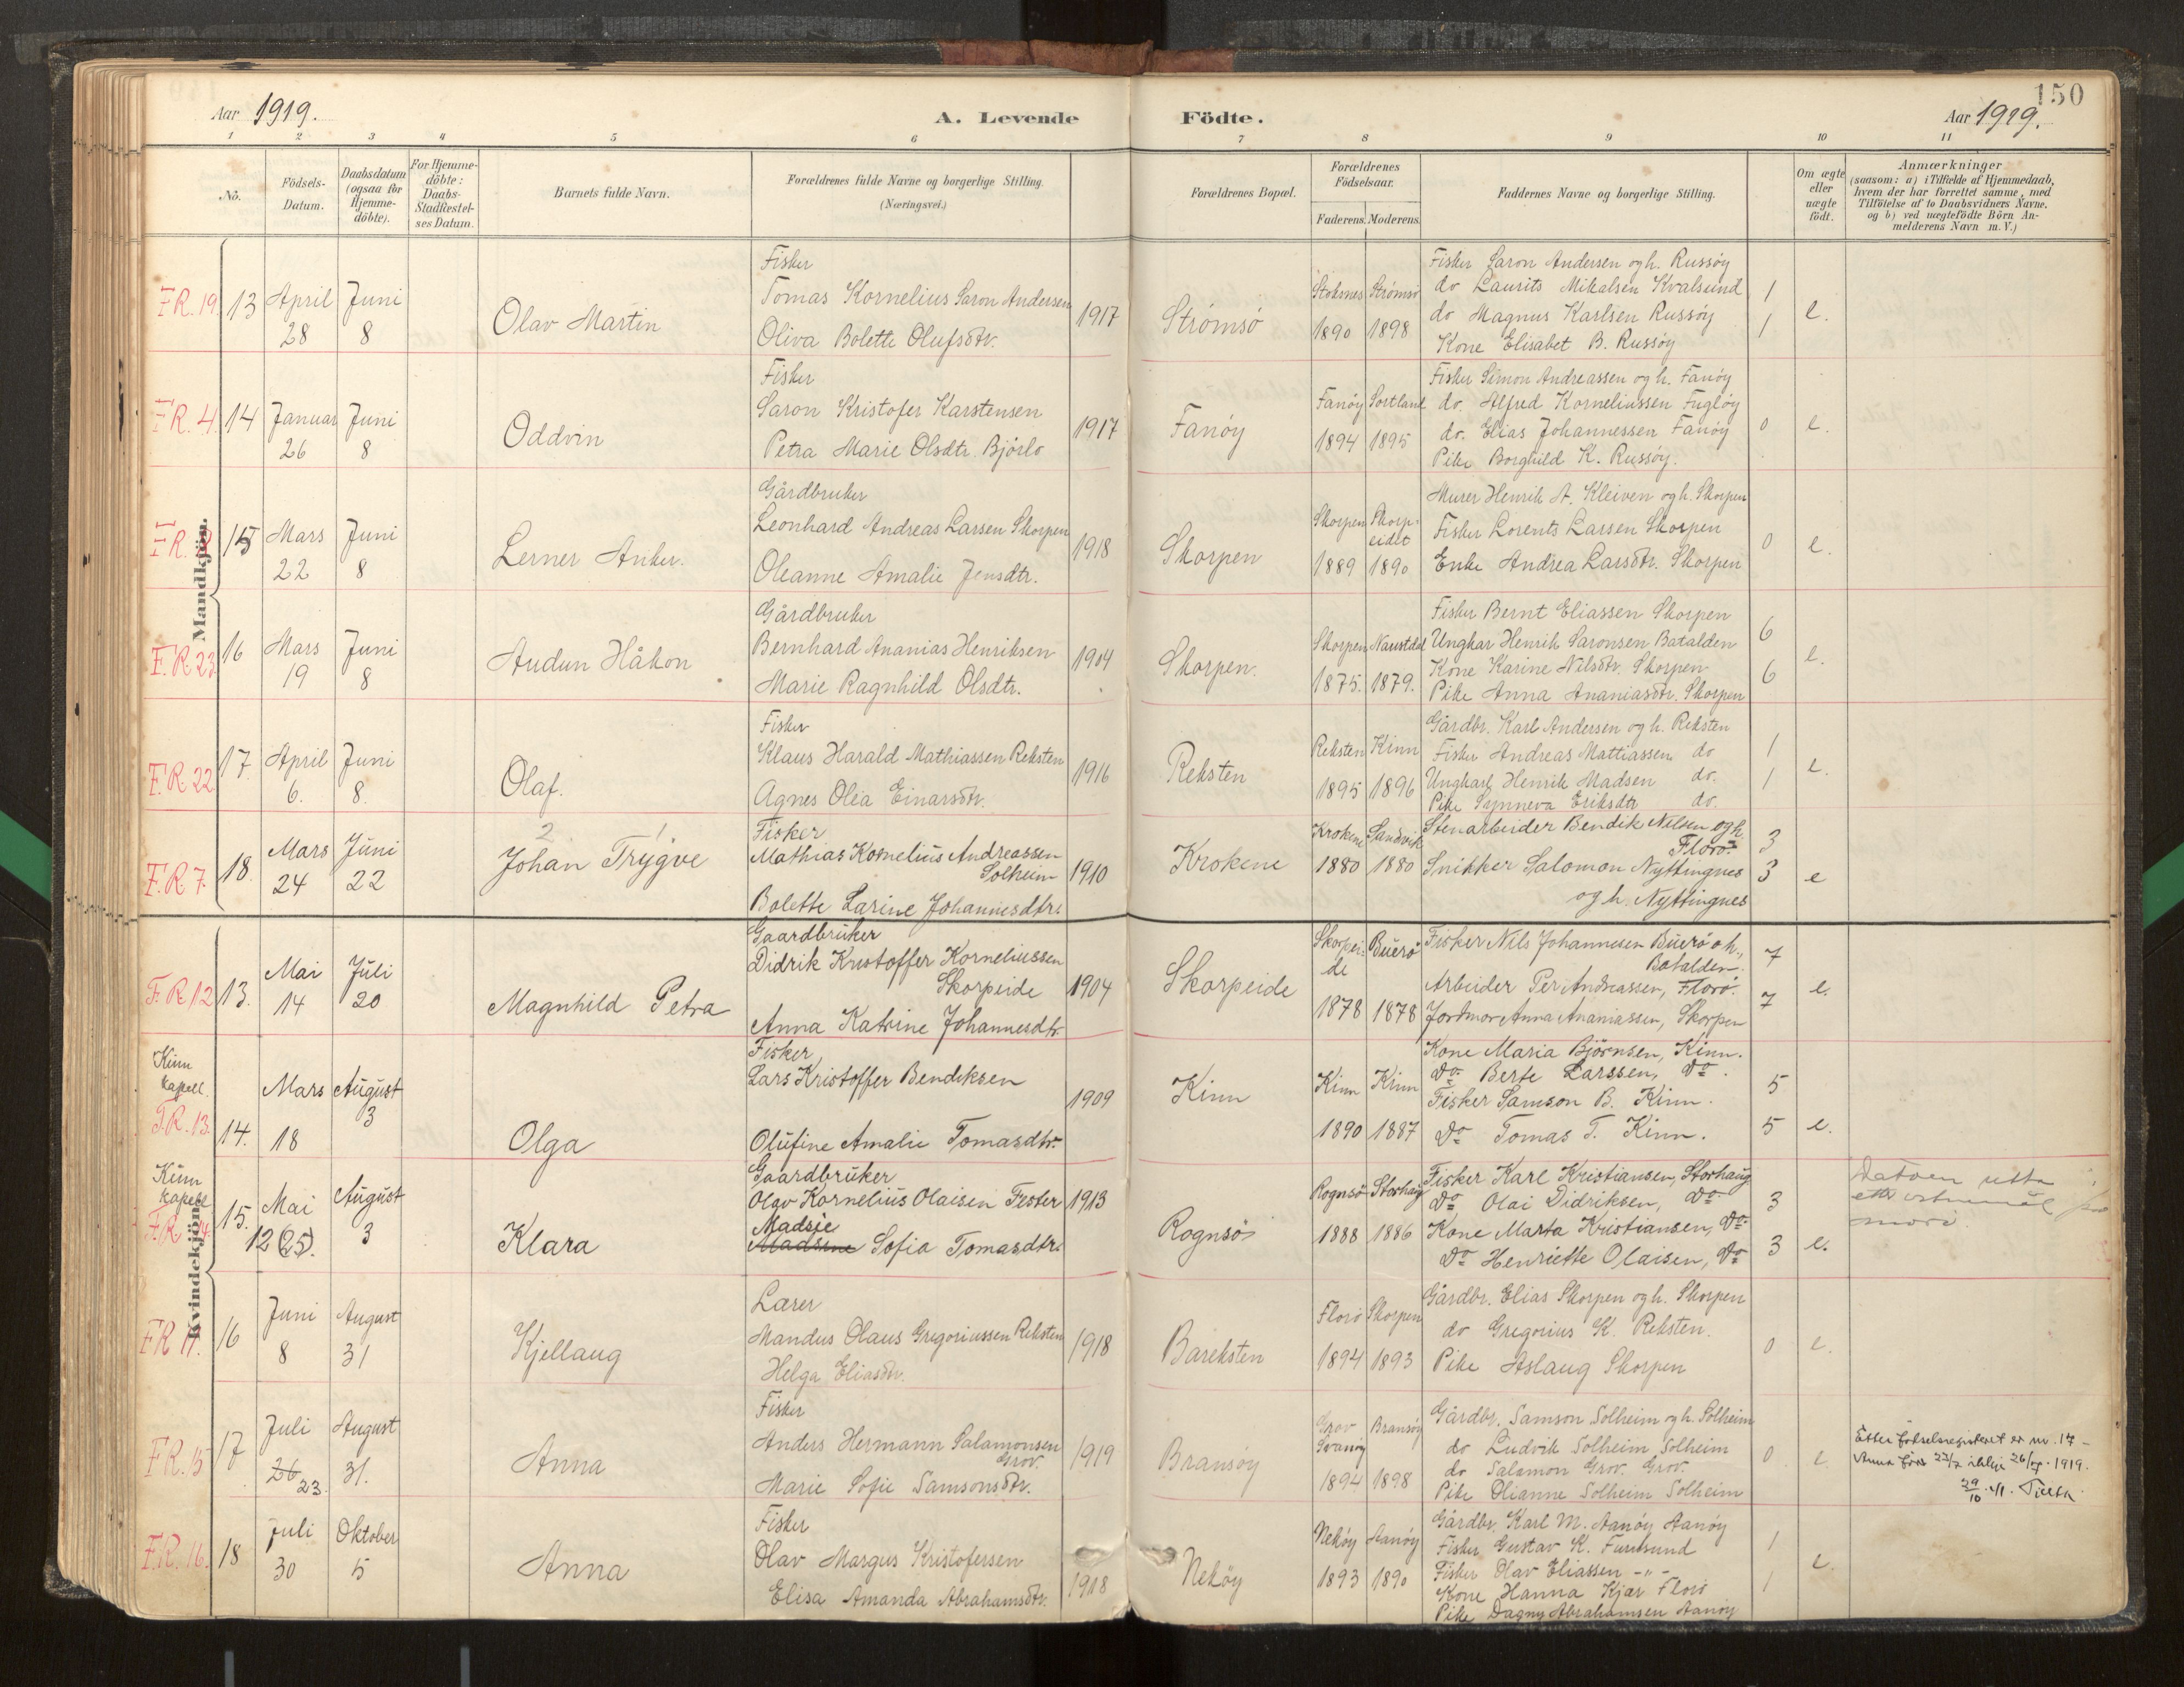 150
Aar 1919. A. Levende Födte. Aar 1919.
1 2 3 4 5 6 7 8 9 10 11
No.
Födsels-
Datum.
Daabsdatum
(ogsaa for
Hjemme-
döbte).
For Hjemme-
döbte:
Daabs-
Stadfæstel-
ses Datum.
Barnets fulde Navn.
Forældrenes fulde Navne og borgerlige Stilling.
(Næringsvei.)
Forældrenes Bopæl.
Forældrenes
Födselsaar.
Faderens. Moderens.
Faddernes Navne og borgerlige Stilling.
Om ægte
eller
uægte
födt.
Anmærkninger
(saasom: a) i Tilfælde af Hjemmedaab,
hvem der har forrettet samme, med
Tilföielse af to Daabsvidners Navne,
og b) ved uægtefödte Börn An-
melderens Navn m. V.)
Mandkjön.
F.R. 19. 13 April 28 Juni 8
Olav Martin
Fisker
Tomas Kornelius Saron Andersen
Oliva Bolette Olufsdtr.
1917
Strömsö
Stoksnes 1890
Strömsö 1898
Fisker Saron Andersen og h. Russöy
do Laurits Mikalsen Kvalsund
do Magnus Karlsen Russöy
Kone Elisabet B. Russöy
1
1
e.
F.R. 4. 14 Januar 26 Juni 8
Oddvin
Fisker
Saron Kristofer Karstensen
Petra Marie Olsdtr. Björlo
1917
Fanöy
Fanöy 1894
Sortland 1895
Fisker Simon Andreassen og h. Fanöy
do. Alfred Korneliussen Fuglöy
do. Elias Johannessen Fanöy
Pike Borghild K. Russöy.
0
e.
F.R. 15 Mars 22 Juni 8
Lerner Anker.
Gårdbruker
Leonhard Andreas Larsen Skorpen
Oleanne Amalie Jensdtr.
1918
Skorpen
Skorpen 1889
Skorp-
eidet 1890
Murer Henrik A. Kleiven og h. Skorpen
Fisker Lorents Larsen Skorpen
Enke Andrea Larsdtr. Skorpen
0
e.
F.R. 23. 16 Mars 19 Juni 8
Audun Håkon
Gårdbruker
Bernhard Ananias Henriksen
Marie Ragnhild Olsdtr.
1904
Skorpen.
Skorpen 1875.
Naustdal 1879.
Fisker Bernt Eliassen Skorpen
Ungkar Henrik Saronsen Batalden
Kone Karine Nilsdtr. Skorpen
Pike Anna Ananiasdtr. Skorpen
6
6
e.
F.R. 22 17. April 6. Juni 8.
Olaf.
Fisker
Klaus Harald Mathiassen Reksten
Agnes Olea Einarsdtr.
1916
Reksten
Reksten 1895
Kinn 1896
Gårdbr. Karl Andersen og h. Reksten
Fisker Andreas Mattiassen do
Ungkarl Henrik Madsen do.
Pike Synneva Eriksdtr do.
1
1
e.
F.R. 7. 18. Mars 24 Juni 22
2 1
Johan Trygve
Fisker
Mathias Kornelius Andreassen
Solheim
Bolette Larine Johannesdtr.
1910
Krokene
Krokene 1880
Sandvik 1880
Stenarbeider Bendik Nilsen og h.
Florö.
Snikker Salomon Nyttingnes
og h. Nyttingnes
3
3
e
Kvindekjön.
F.R. 12 13. Mai 14 Juli 20
Magnhild Petra
Gaardbruker
Didrik Kristoffer Korneliussen
Skorpeide
Anna Katrine Johannesdtr.
1904
Skorpeide
Skorpei-
de 1878
Buerö 1878
Fisker Nils Johannesen Buerö o h.,
Batalden.
Arbeider Per Andreassen, Florö.
Jordmor Anna Ananiassen, Skorpen
7
7
e.
Kinn
kapell.
F.R. 13. 14. Mars 18 August 3
Olga
Fisker
Lars Kristoffer Bendiksen
Olufine Amalie Tomasdtr.
1909
Kinn
Kinn 1890
Kinn 1887
Kone Maria Björnsen, Kinn.
Do. Berte Larssen, Do.
Fisker Samson B. Kinn.
Do Tomas T. Kinn.
5
5
e.
Kinn
kapell
F.R. 14. 15. Mai 12 (25). August 3
Klara
Gaardbruker
Olav Kornelius Olaisen Fester
Madsje
Madsine Sofia Tomasdtr.
1913
Rognsö
Rognsö 1888
Storhaug 1886
Fisker Karl Kristiansen, Storhaug
Do Olai Didriksen, Do
Kone Marta Kristiansen, Do
Do Henriette Olaisen, Do
3
3
e.
F.R. 11. 16 Juni 8 August 31
Kjellaug
Lærer
Mandus Olaus Gregoriussen Reksten
Helga Eliasdtr.
1918
Bareksten
Florö 1894
Skorpen 1893
Gårdbr. Elias Skorpen og h. Skorpen
do Gregorius K. Reksten.
Pike Aslaug Skorpen
0
e.
F.R. 15 17 Juli 26 23. August 31.
Anna
Fisker
Anders Hermann Salamonsen
Grov.
Marie Sofie Samsonsdtr.
1919
Bransöy
Grov
Svanöy 1894
Bransöy 1898
Gårdbr. Samson Solheim og h. Solheim
do Ludvik Solheim Solheim
do Salamon Grov. Grov.
Pike Olianne Solheim Solheim
0
e.
Etter fødselsregisteret er nr. 17 -
Anna født 23/7 ikkje 26/7 1919.
29/10 41.
F.R. 16. 18 Juli 30 Oktober 5
Anna
Fisker
Olav Margus Kristofersen
Elisa Amanda Abrahamsdtr.
1918
Nekøy
Nekøy 1893
Aanøy 1890
Gårdbr. Karl M. Aanøy Aanøy
Fisker Gustav K. Furusund
Fisker Olav Eliassen -"-
Kone Hanna Kjær Florö
Pike Dagny Abrahamsen Aanøy
1
1
e.